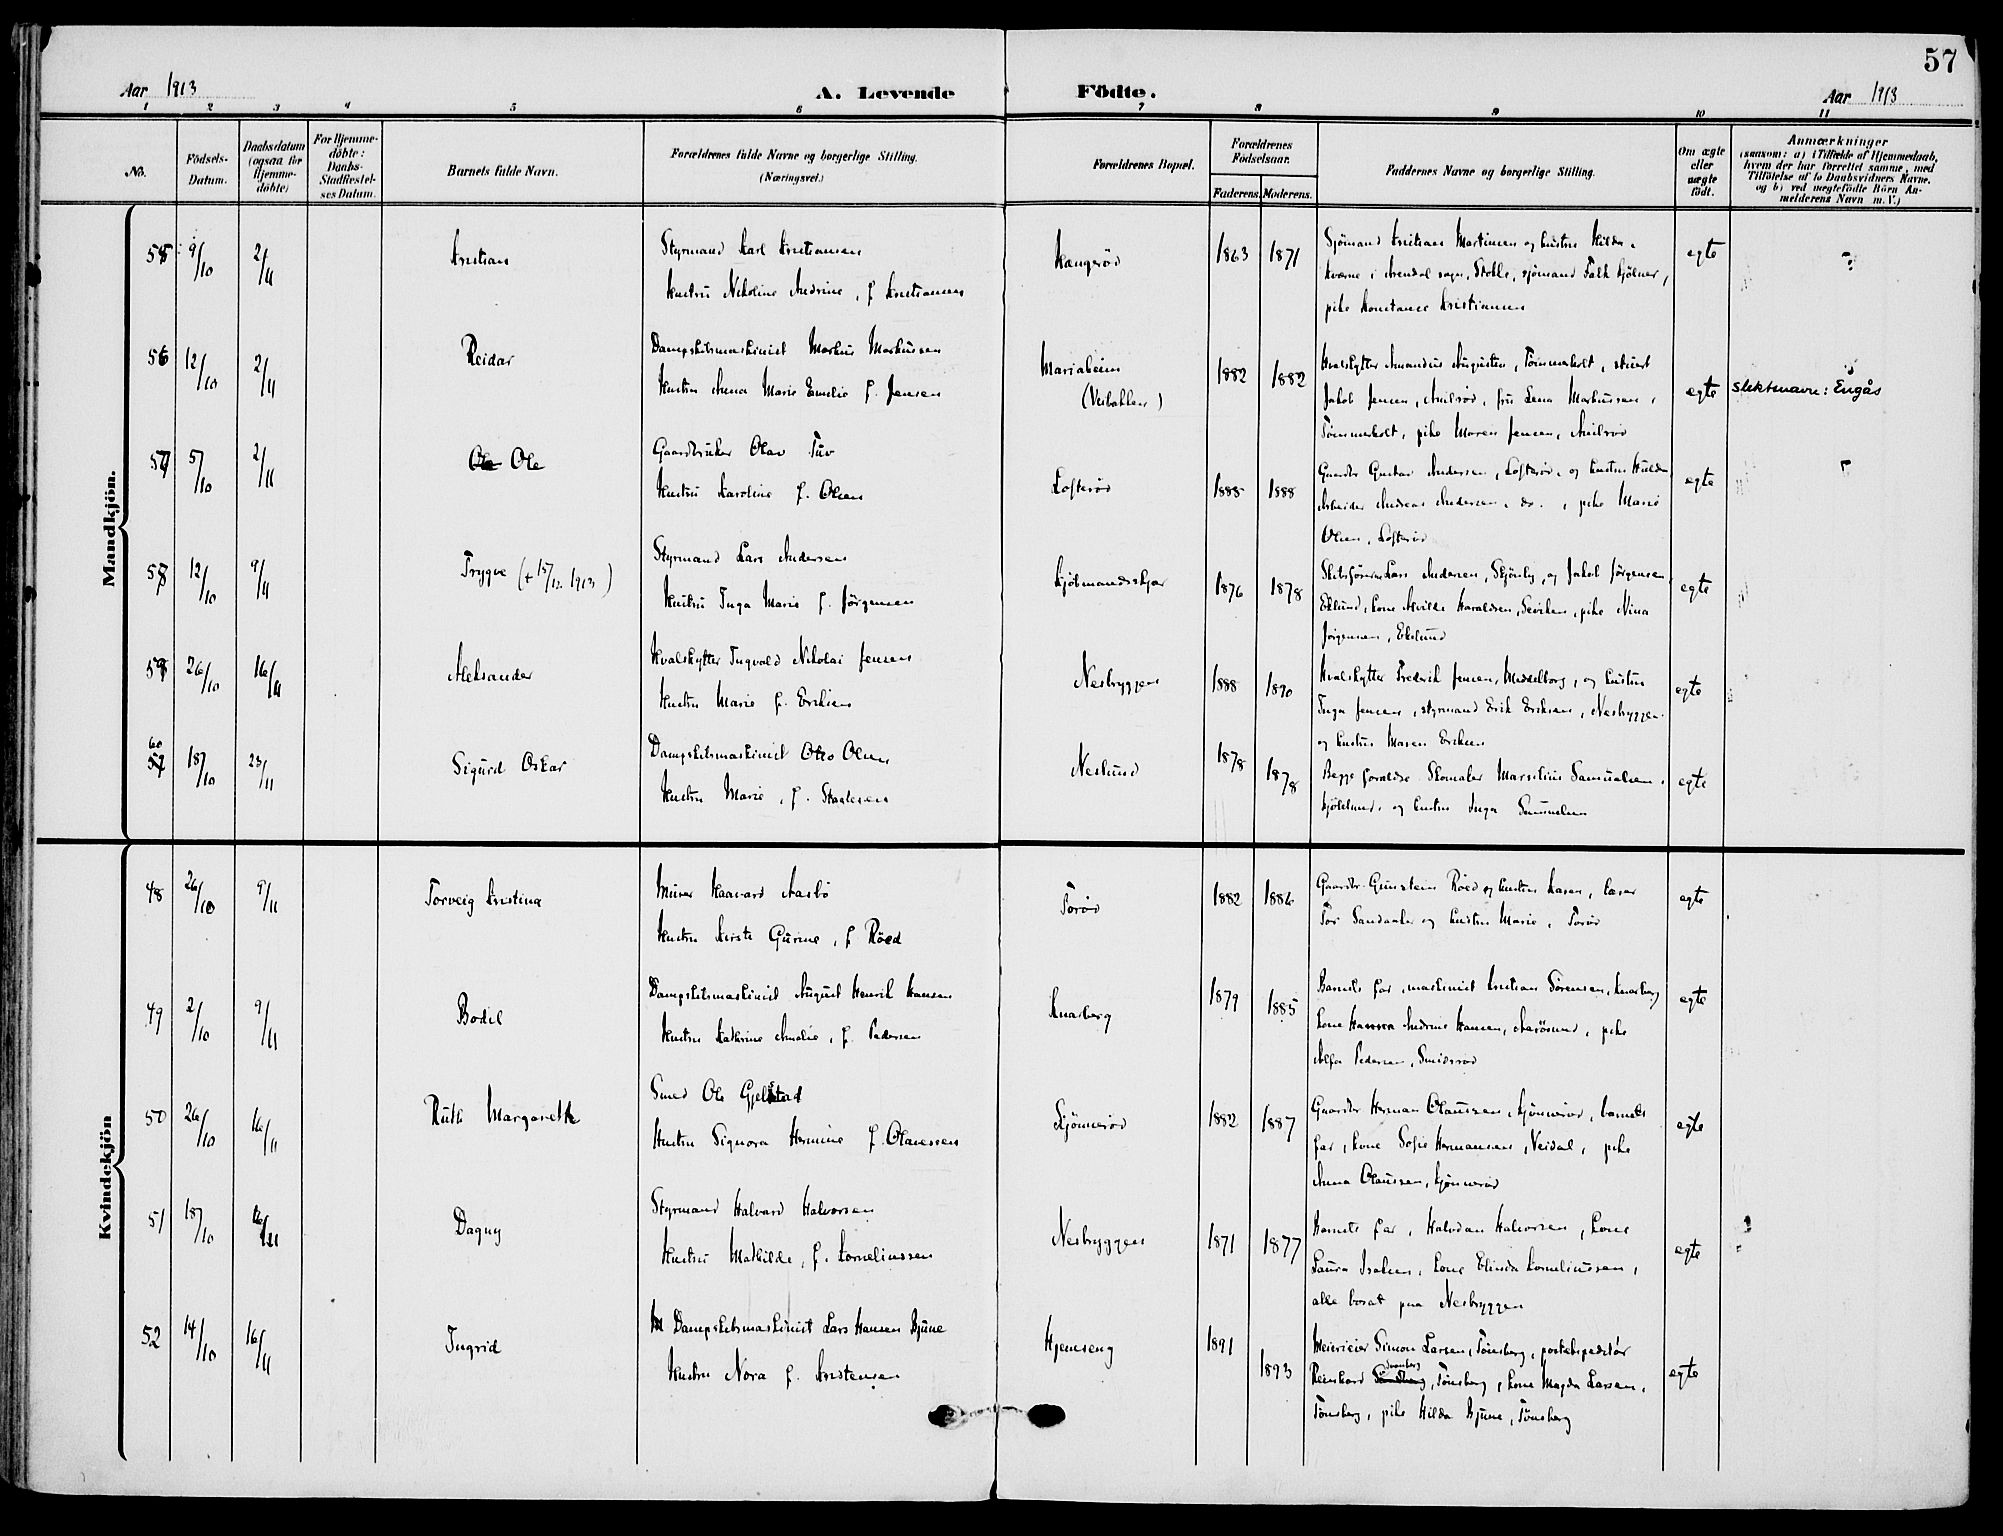 57
Aar 1913 A. Levende Födte. Aar 1913
1 2 3 4 5 6 7 8 9 10 11
No.
Födsels-Datum.
Daabsdatum (ogsaa for Hjemme-döbte)
For Hjemme-döbte: Daabs-Stadfæstel-ses Datum.
Barnets fulde Navn.
Forældrenes fulde Navne og borgerlige Stilling.
(Næringsvei.)
Forældrenes Bopæl.
Forældrenes Födselsaar.
Faderens. Moderens.
Faddernes Navne og borgerlige Stilling.
Om ægte eller uægte födt.
Anmærkninger
(saasom: a) i Tilfælde af Hjemmedaab, hvem der har forrettet samme, med Tilföielse af to Daabsvidners Navne, og b) ved uægtefödte Börn An-melderens Navn m. V.)
Mandkjön.
55 9/10 2/11 Kristian
Styrmand Karl Kristiansen
Hustru Nikoline Andrine, f. Kristiansen
Kaugerød 1863 1871
Sjömand Kristian Martinsen og hustru Hilda,
Kværne i Arendal sogn, Stokke, sjömand Falk Kjölner,
pike Konstance Kristiansen
egte
56 12/10 2/11 Reidar
Dampskibsmaskinist Markus Markussen
Hustru Anna Marie Emilie f. Jensen
Mariaheim
(Vestbakken)
1882 1882
Hvalskytter Amandus Augustsen, Tömmerholt, stuert
Jakob Jensen, Anilsröd, fru Lena Markussen,
Tömmerholt, pike Maren Jensen, Anilsröd
egte slektsnavn: Engås
57 5/10 2/11 Ole
Gaardbruker Olav Tuv
Hustru Karoline f. Olsen
Lofteröd 1888 1888
Gaardbr Gustav Andersen, Lofteröd, og hustru Hulda,
Arbeider Andreas Andersen, do., pike Marie
Olsen, Lofteröd
egte
58 12/10 9/11 Trygve (+ 15/12 1913)
Styrmand Lars Andersen
Hustru Inga Marie f. Jörgensen
Kjöbmandsskjær 1876 1878
Skibsförer Lars Andersen, Skjönly, og Jakob Jörgensen,
Eklund, kone Alvilde Haraldsen, Seviken, pike Nina
Jörgensen, Eklund
egte
59 26/10 16/11 Aleksander
Hvalskytter Ingvald Nikolai Jensen
Hustru Marie f. Eriksen
Nesbryggen 1888 1890
Hvalskytter Fredrik Jensen, Middelborg, og hustru
Inga Jensen, styrmand Erik Eriksen, Nesbryggen
og hustru Maren Eriksen
egte
60 18/10 23/11 Sigurd Oskar
Dampskibsmaskinist Otto Olsen
Hustru Marie, f. Staalesen
Neslund 1878 1878
Begge foreldre. Skomaker Marselius Samuelsen,
Kjölelund, og hustru Inga Samuelsen
egte
Kvindekjön
48 26/10 9/11 Torveig Kristina
Murer Haavard Aasbö
Hustru Kirsti Gurine, f. Röed
Toröd 1882 1886
Gaardbr. Gunstein Röed og hustru Karen, lærer
Tor Sandaaker og hustru Marie, Toröd
egte
49 2/10 9/11 Bodil
Dampskibsmaskinist August Henrik Hansen
Hustru Kathrine Amalie, f. Pedersen
Knarberg 1879 1885
Barnets far, maskinist Kristian Sörensen, Knarberg
kone Hanna Andrine Hansen, Aarösund, pike
Alfa Pedersen, Smidsröd
egte
50 26/10 16/11 Ruth Margarethe
Smed Ole Gjelstad
Hustru Signora Hermine f. Olaussen
Kjönneröd 1882 1887
Gaardbr Herman Olaussen, Kjönneröd, barnets
far, kone Sofie Hermansen, Neidal, pike
Anna Olaussen, Kjönneröd
egte
51 18/10 16/11 Dagny
Styrmand Halvard Halvorsen
Hustru Mathilde, f. Korneliussen
Nesbryggen 1871 1877
Barnets far, Halvdan Halvorsen, kone
Laura Isaksen, kone Elinda Korneliussen,
alle bosat paa Nesbryggen
egte
52 14/10 16/11 Ingrid
Dampskibsmaskinist Lars Hansen Bjune
Hustru Nora f. Kristensen
Hjemseng 1891 1893
Meierieier Simon Larsen, Tönsberg, postekspeditör
Reinhard Svanberg, Tönsberg, kone Magda Larsen,
Tönsberg, pike Hilda Bjune, Tönsberg
egte